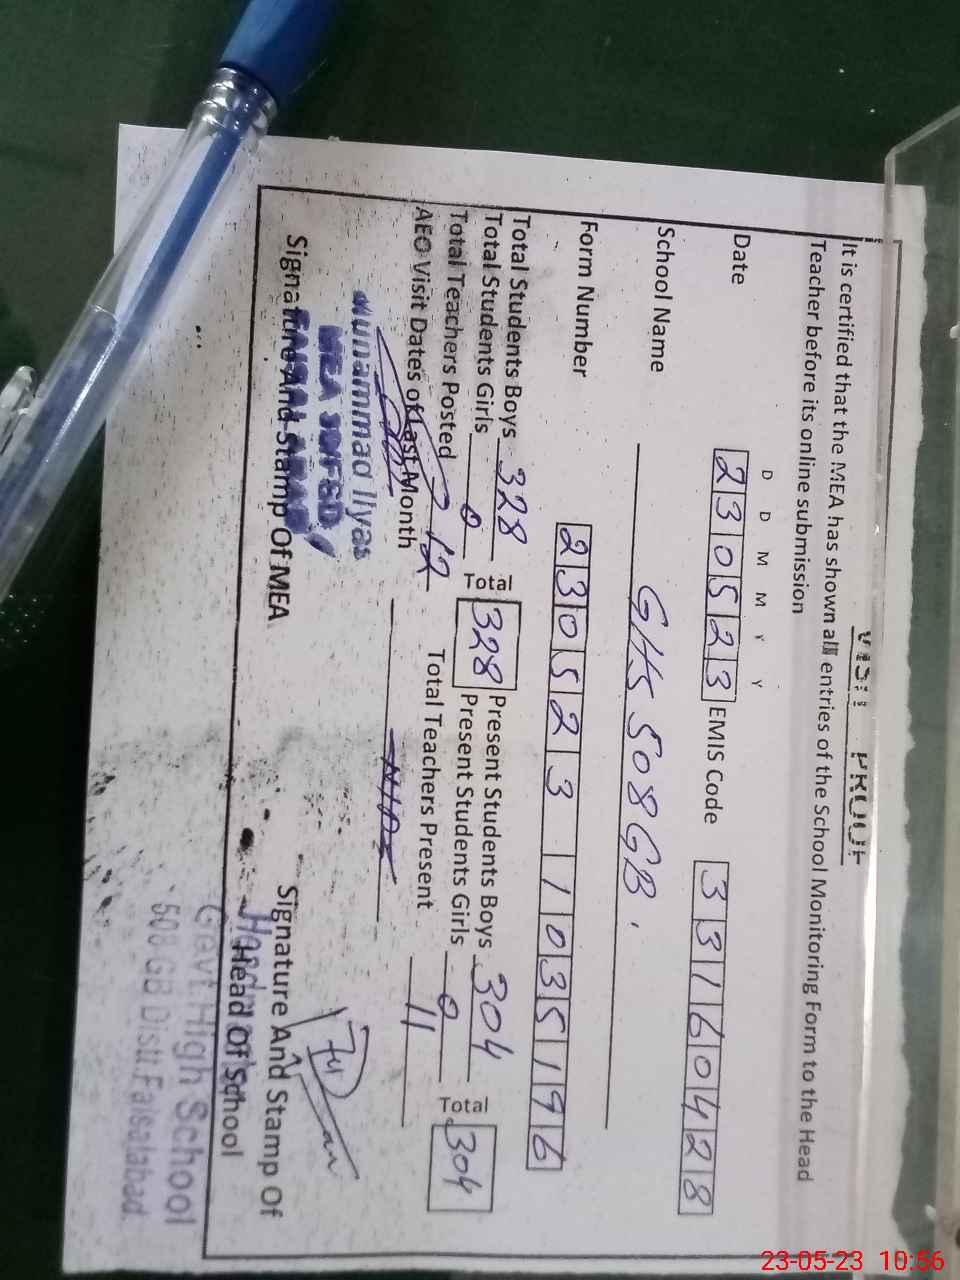 VISIT PROOF
It is certified that the MEA has shown all entries of the School Monitoring Form to the Head
Teacher before its online submission
D D M M Y Y
Date 230523 EMIS Code 33160428
School Name GHS 508GB.
Form Number 2305231035196
Total Students Boys 328 Total 328 Present Students Boys 304 Total 304
Total Students Girls 0 Present Students Girls 0
Total Teachers Posted 12 Total Teachers Present 11
AEO Visit Dates of Last Month
Muhammad Ilyas
MEA
Signature And Stamp Of MEA
Signature And Stamp Of
Head Of School
Govt. High School
508 GB Distt. Faisalabad.
23-05-23 10:56